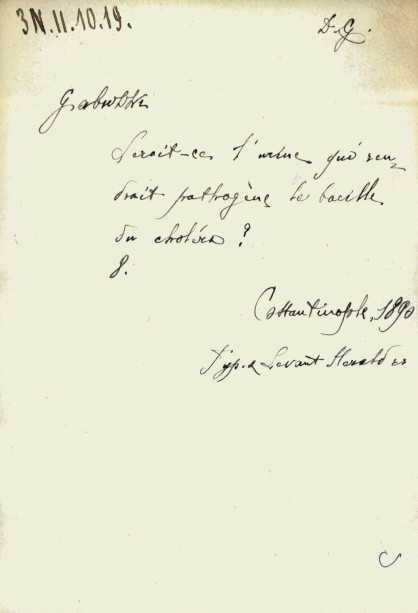 3 N. II. 10. 19.
D. G.
Serait-ce l'urine qui ren-
drait pathogène le bacille
du choléra ?
8.
Constantinople, 1890
Typ. Levant Herald